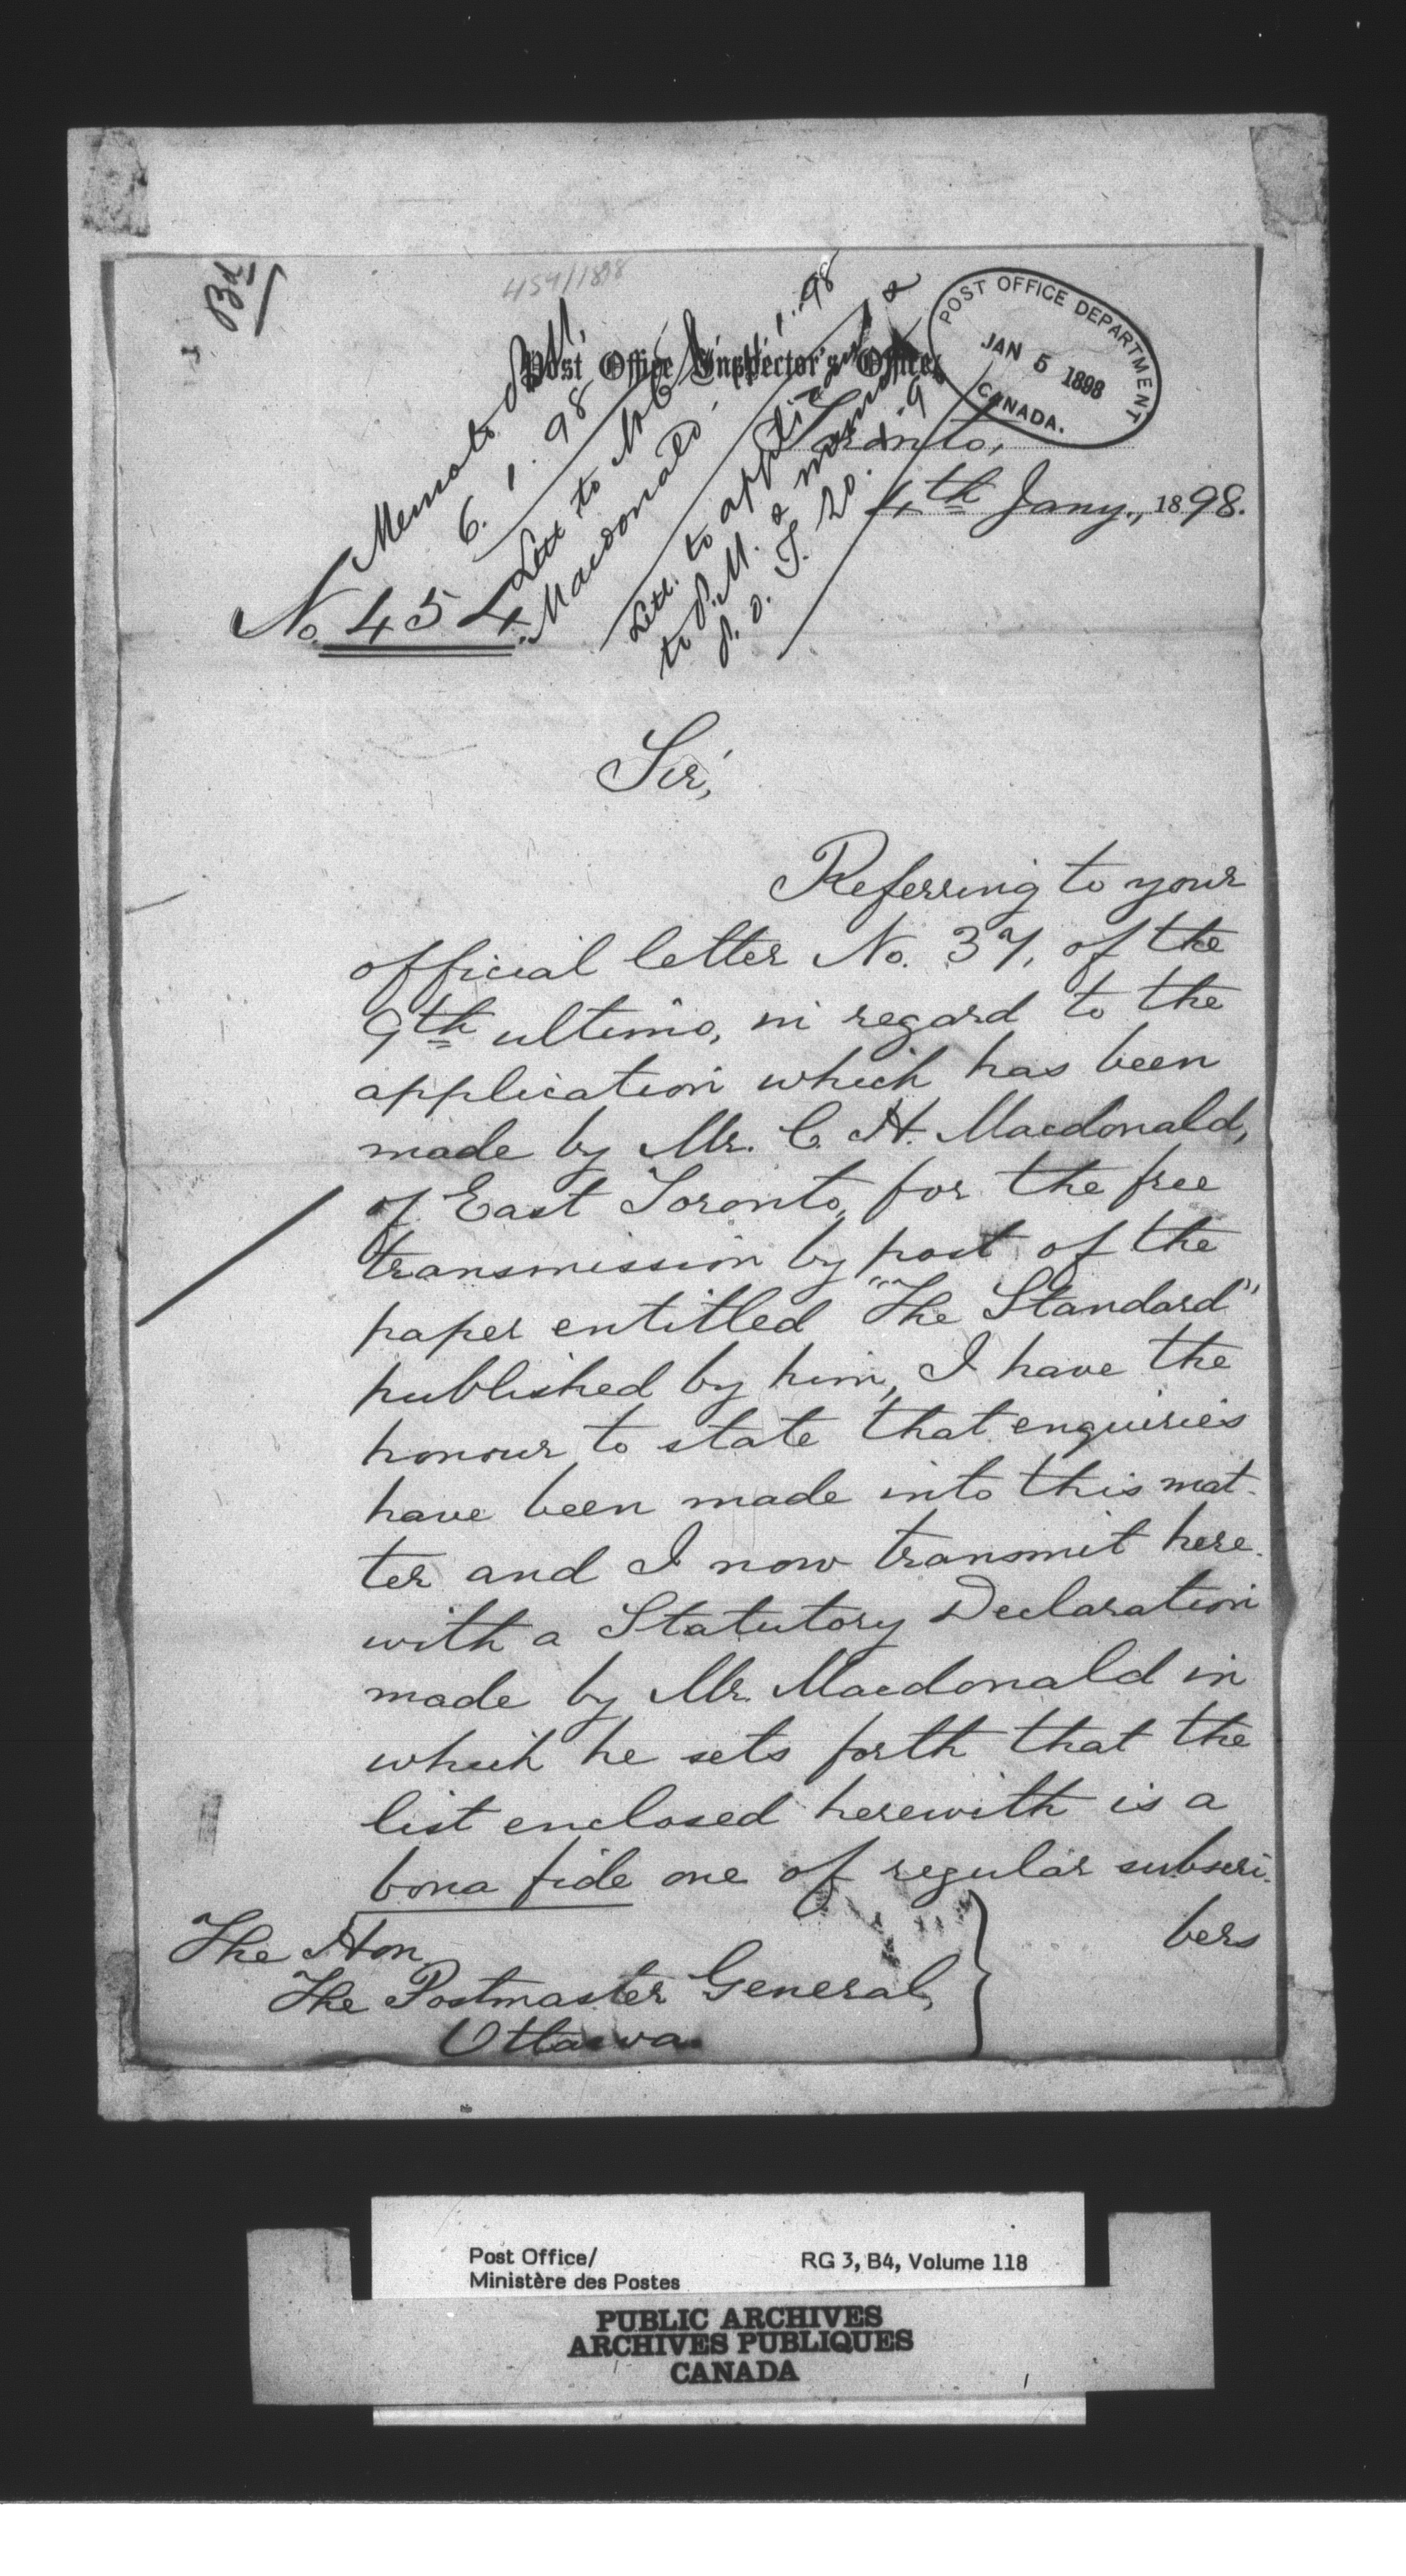 Bd
454/1898
Post Office Inspector's Office,
POST OFFICE DEPARTMENT
JAN 5 1898
CANADA.
Toronto,
4th Jany., 1898.
Memo to P.M.
6. 1. 98
Lett to Mr C H
Macdonald 1. 98
Lett. to applicant &
to P.M. &
P. O. I. 20. 1. 9
No. 454.
Sir,
Referring to your
official letter No. 37, of the
9th ultimo, in regard to the
application which has been
made by Mr. C. H. Macdonald,
of East Toronto, for the free
transmission by post of the
paper entitled "The Standard"
published by him, I have the
honour to state that enquiries
have been made into this mat-
ter and I now transmit here-
with a Statutory Declaration
made by Mr. Macdonald in
which he sets forth that the
list enclosed herewith is a
bona fide one of regular subscri-
bers
The Hon
The Postmaster General,
Ottawa
Post Office/
Ministère des Postes
RG 3, B4, Volume 118
PUBLIC ARCHIVES
ARCHIVES PUBLIQUES
CANADA